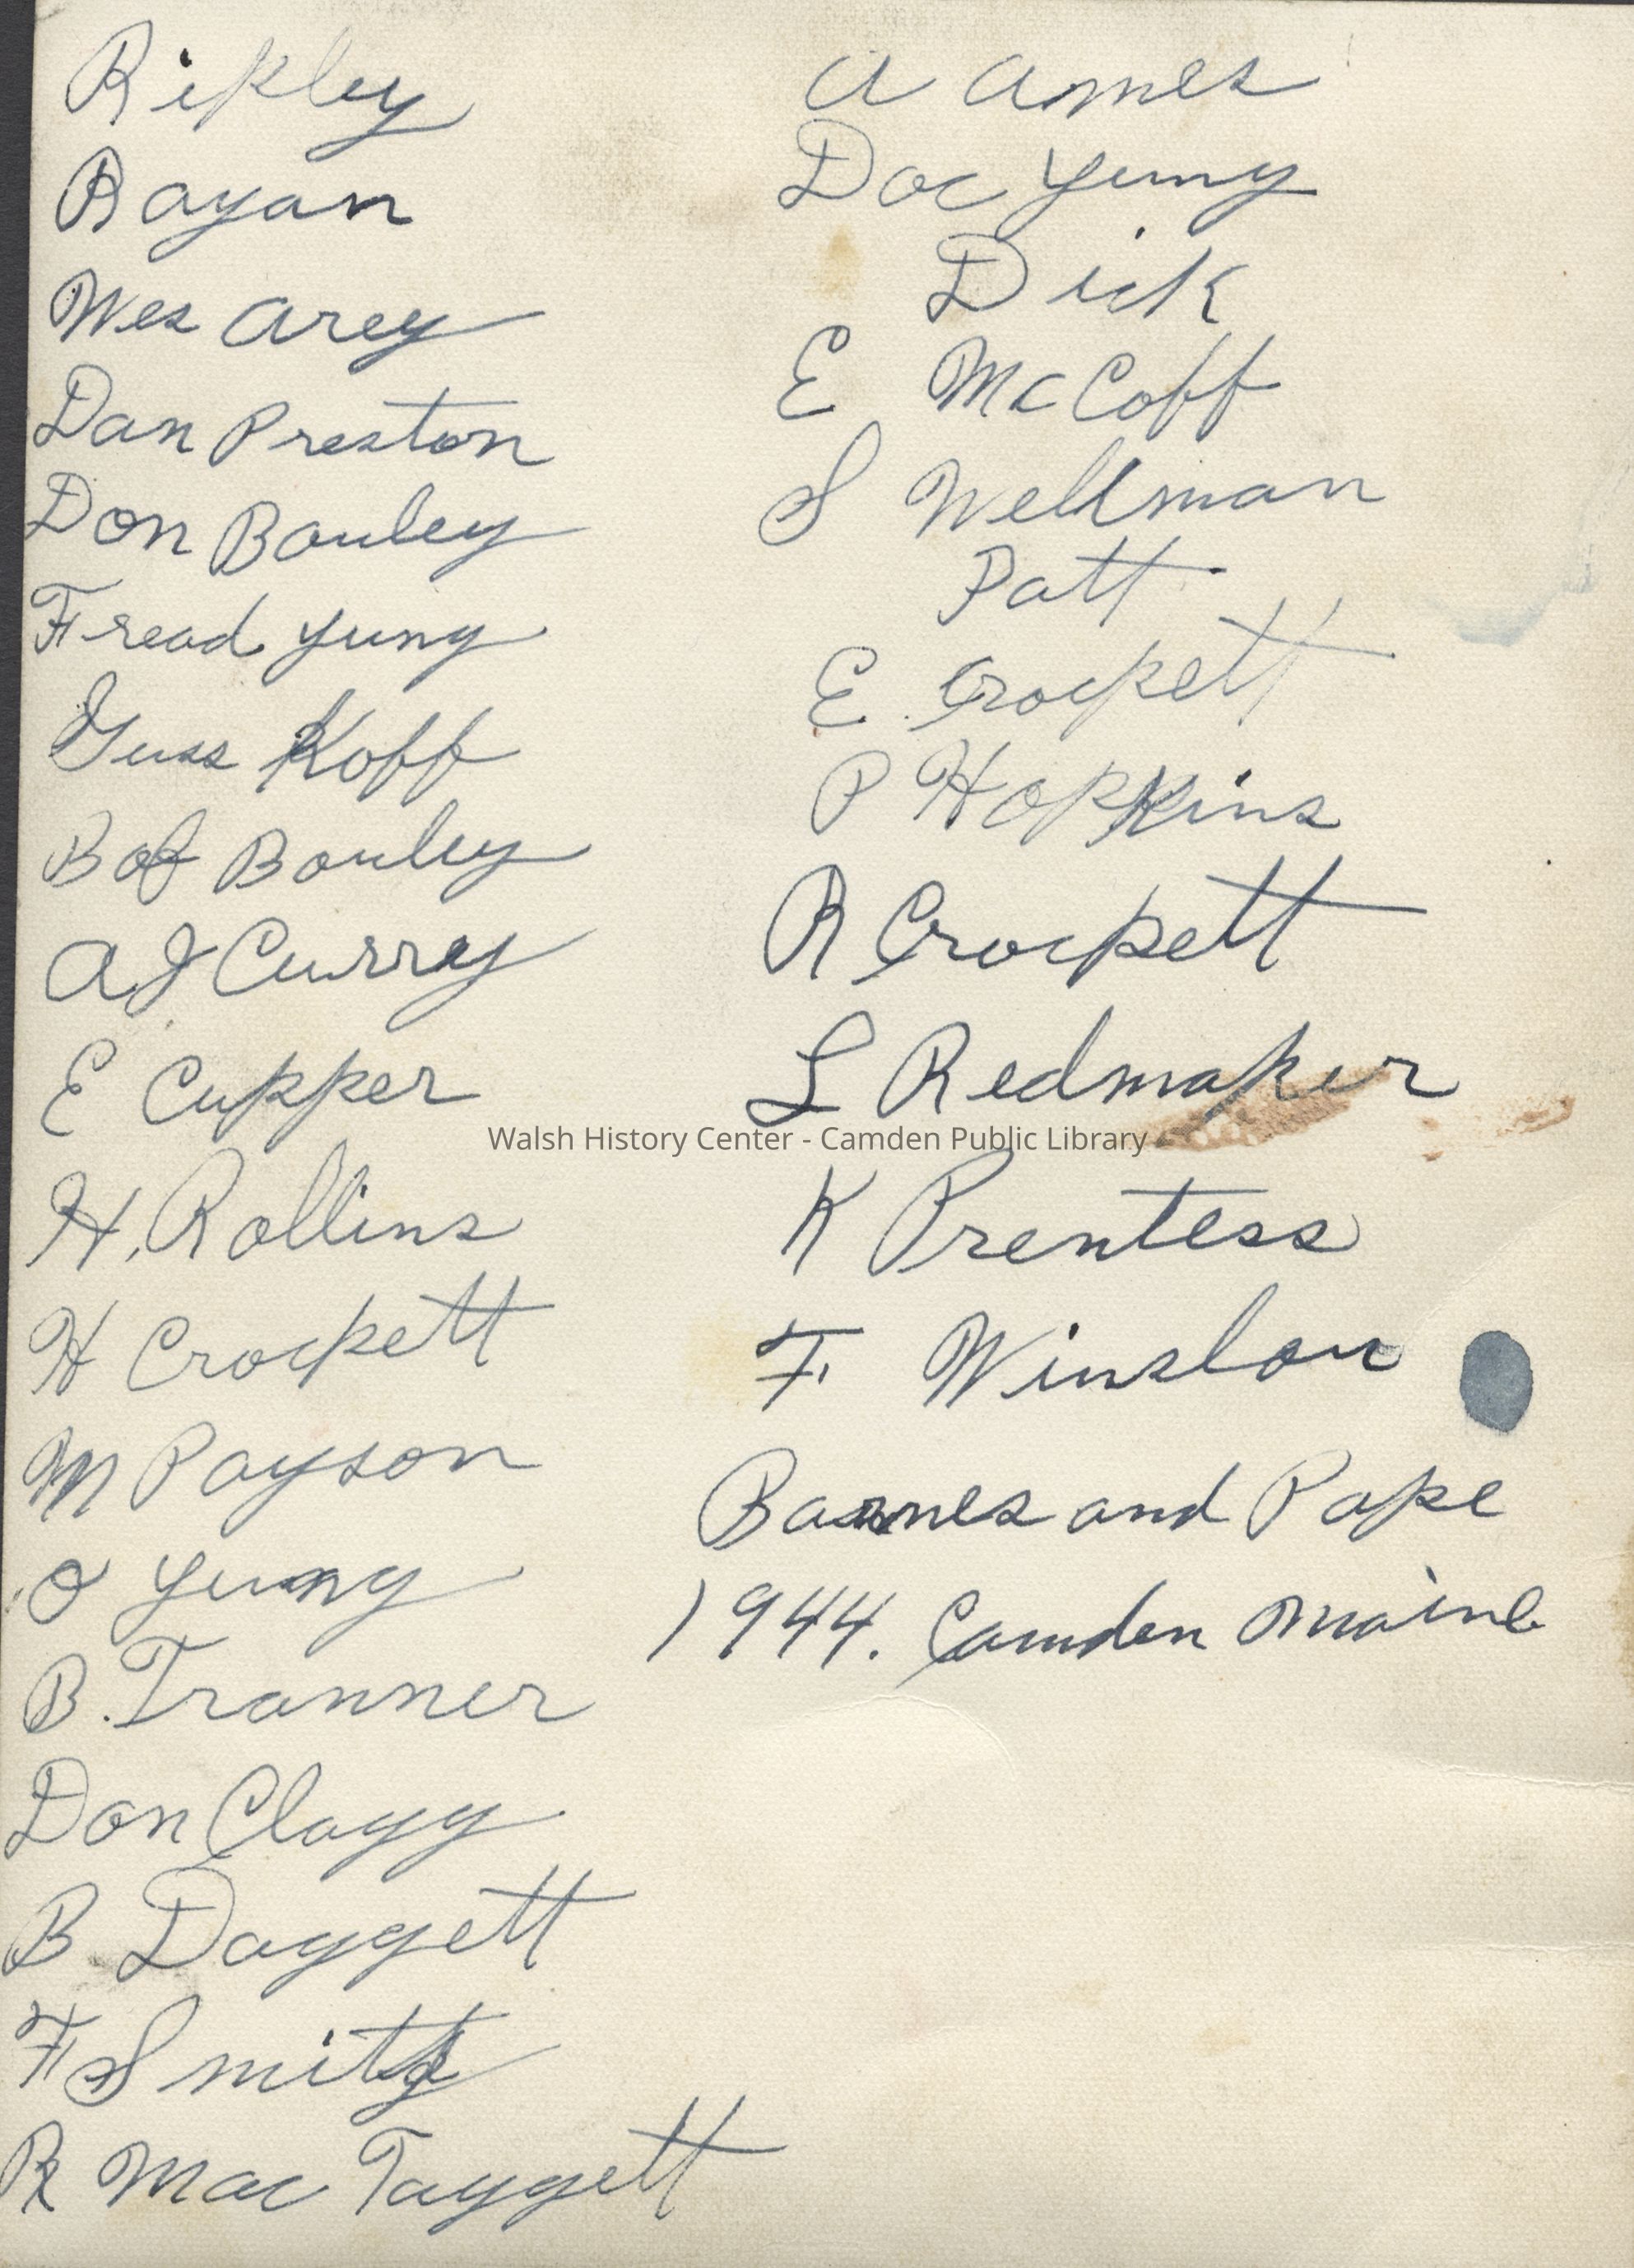 Ripley
Rayan
Wes Arey
Dan Preston
Don Bouley
Fread Yung
Guss Koff
Bob Bouley
A J Curry
E Cupper
H. Rollins
H Crockett
M Payson
O Yung
B. Tranner
Don Clagg
B Daggett
F Smith
R Mac Taggett
A Ames
Doc Yung
Dick
E McCobb
S Wellman
Patt
E Crockett
P Hopkins
R Crockett
L Redmaker
Walsh History Center - Camden Public Library
K Prentess
F Winslow
Barnes and Pape
1944. Camden Maine